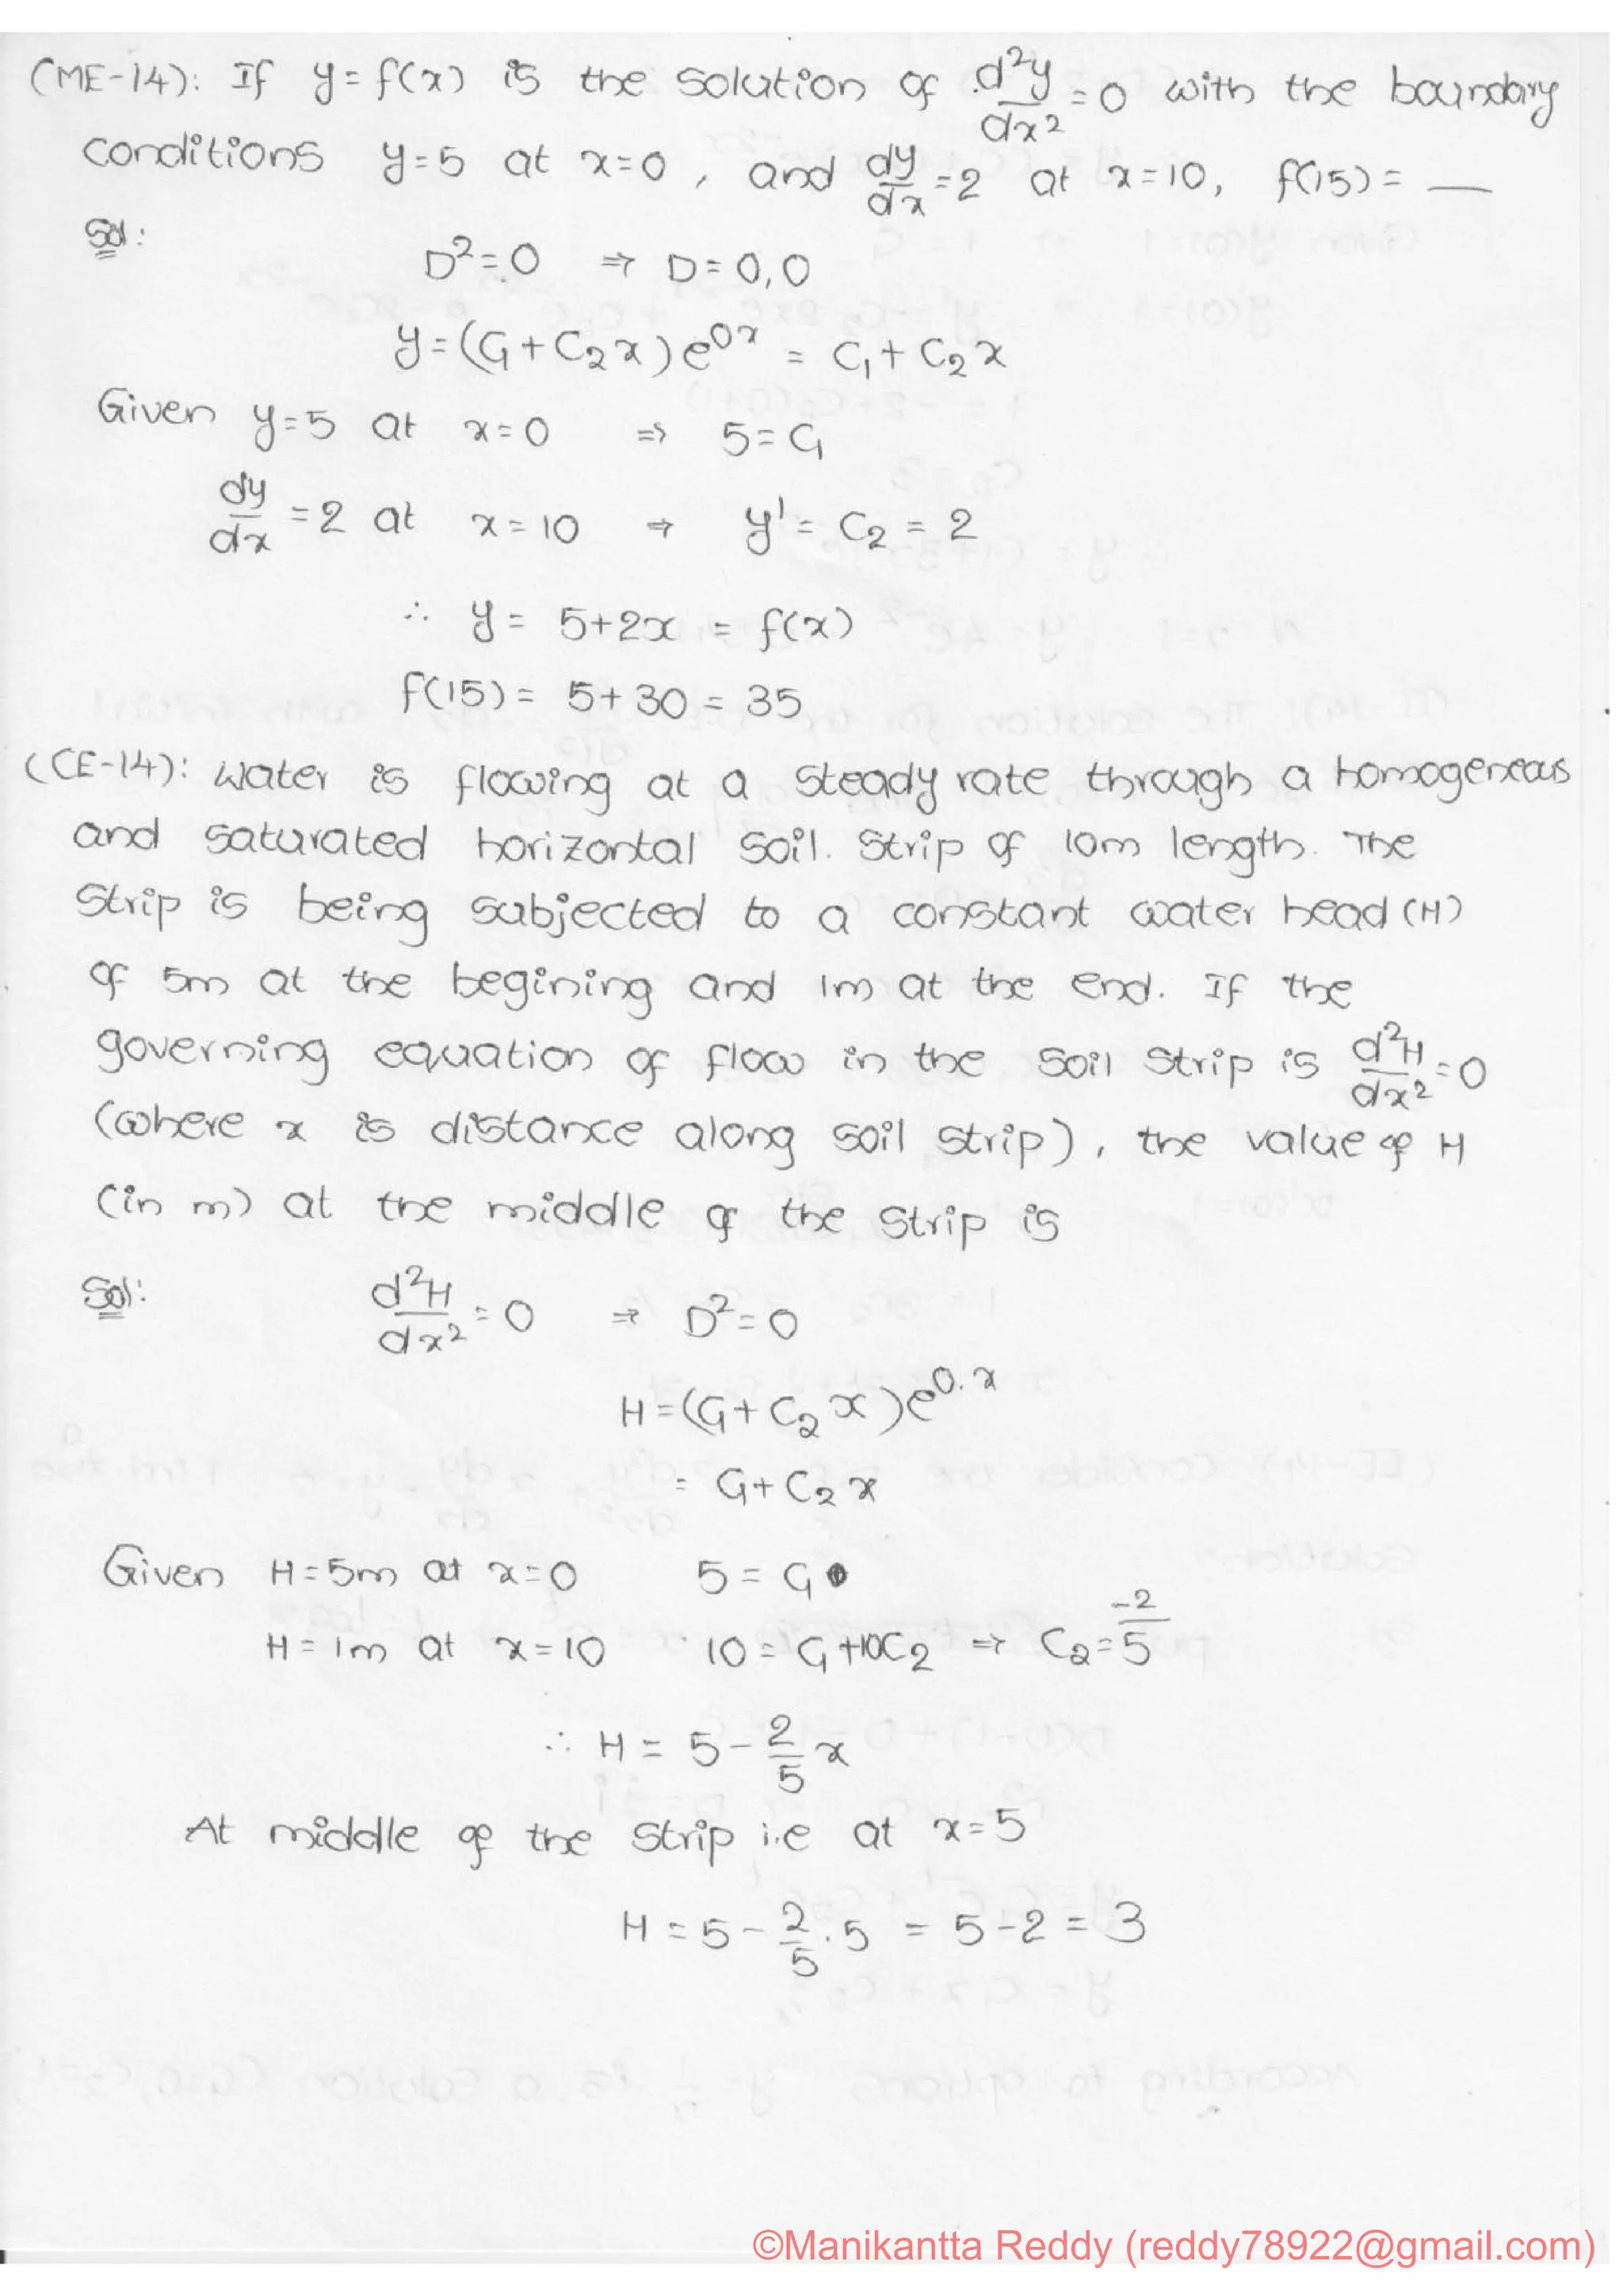 (ME-14): If y = f(x) is the solution of d²y/dx² = 0 with the boundary
conditions y=5 at x=0, and dy/dx = 2 at x=10, f(15) = __
Sol:
D² = 0 ⇒ D = 0,0
y = (C₁ + C₂x)e^{0x} = C₁ + C₂x
Given y=5 at x=0 ⇒ 5 = C₁
dy/dx = 2 at x=10 ⇒ y' = C₂ = 2
∴ y = 5+2x = f(x)
f(15) = 5+30 = 35
(CE-14): Water is flowing at a steady rate through a homogeneous
and saturated horizontal soil. strip of 10m length. The
strip is being subjected to a constant water head (H)
of 5m at the begining and 1m at the end. If the
governing equation of flow in the soil strip is d²H/dx² = 0
(where x is distance along soil strip), the value of H
(in m) at the middle of the strip is
Sol:
d²H/dx² = 0 ⇒ D² = 0
H = (C₁ + C₂x)e^{0.x}
= C₁ + C₂x
Given H=5m at x=0 5 = C₁
H = 1m at x=10 10 = C₁+10C₂ ⇒ C₂ = -2/5
∴ H = 5 - 2/5 x
At middle of the strip i.e at x=5
H = 5 - 2/5 . 5 = 5-2 = 3
©Manikantta Reddy (reddy78922@gmail.com)